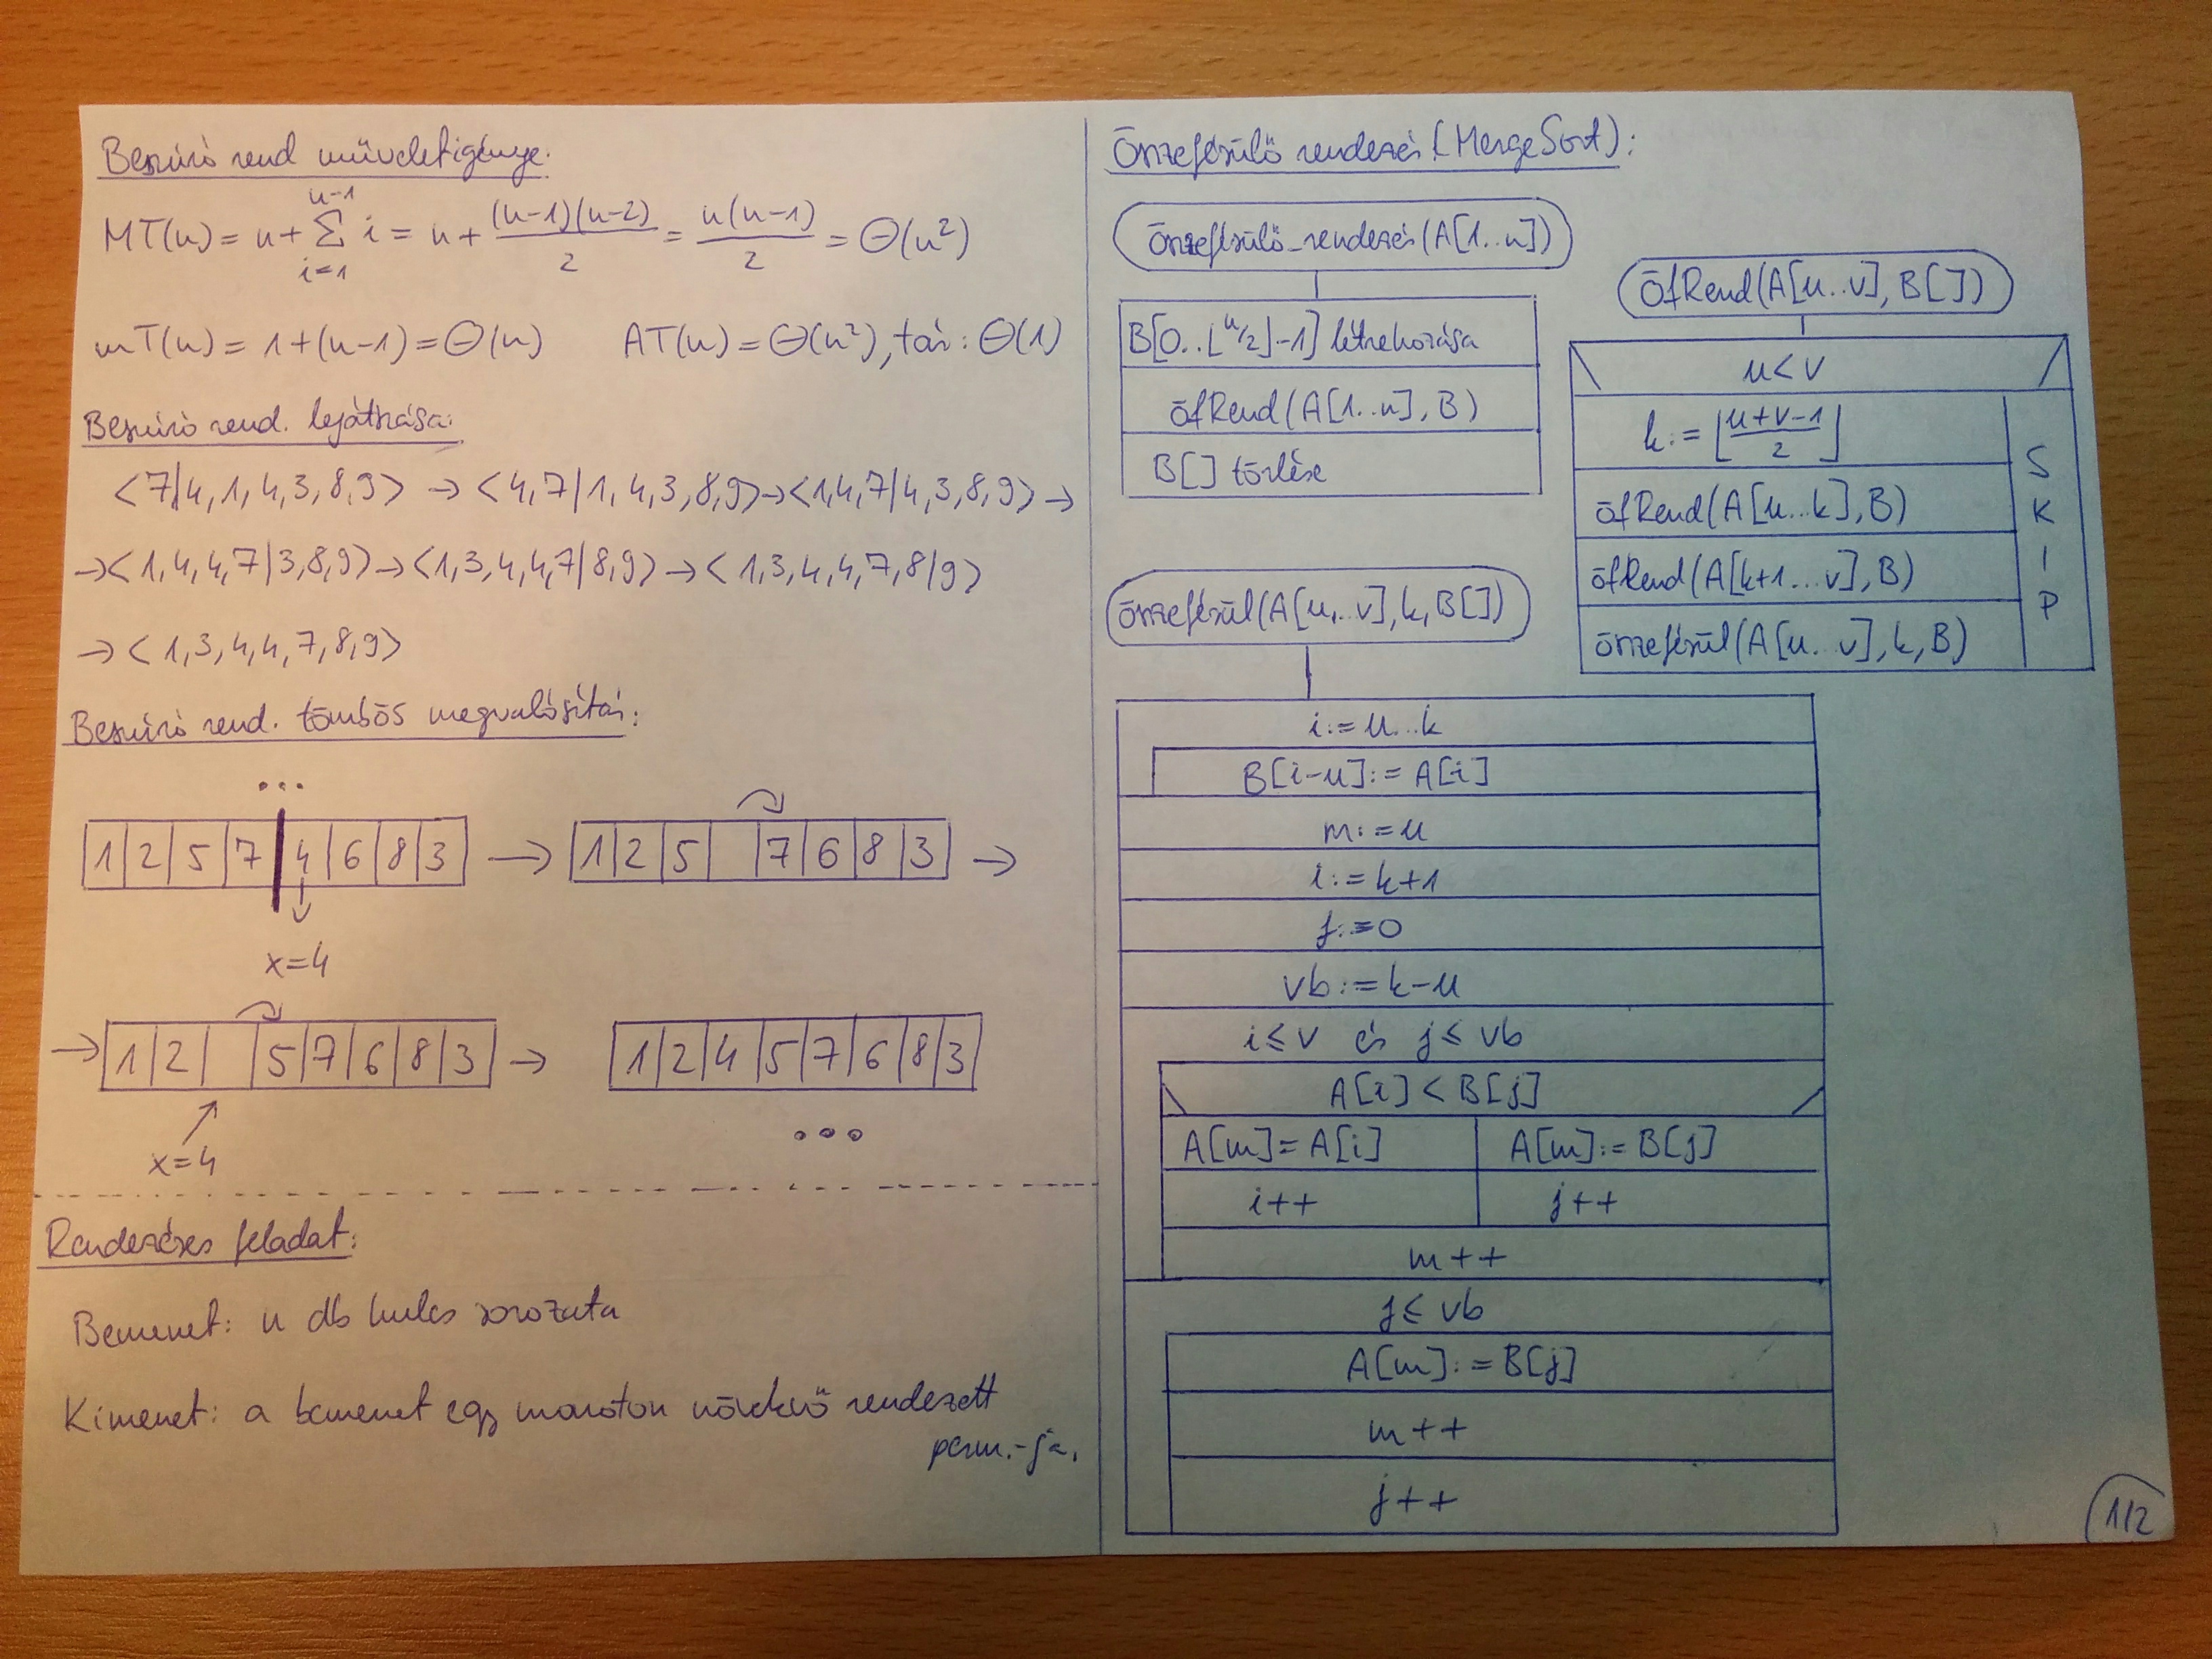 Beszúró rend műveletigénye:
MT(n) = n + \sum_{i=1}^{n-1} i = n + \frac{(n-1)(n-2)}{2} = \frac{n(n-1)}{2} = Θ(n²)
mT(n) = 1+(n-1) = Θ(n)   AT(n) = Θ(n²), tár: Θ(1)
Beszúró rend. lejátszása:
<7|4,1,4,3,8,9> → <4,7|1,4,3,8,9> → <1,4,7|4,3,8,9> →
→ <1,4,4,7|3,8,9> → <1,3,4,4,7|8,9> → <1,3,4,4,7,8|9>
→ <1,3,4,4,7,8,9>
Beszúró rend. tömbös megvalósítás:
...
1|2|5|7|4|6|8|3 → 1|2|5| |7|6|8|3 →
x=4
→ 1|2| |5|7|6|8|3 → 1|2|4|5|7|6|8|3
x=4
...
Rendezéses feladat:
Bemenet: n db kulcs sorozata
Kimenet: a bemenet egy monoton növekvő rendezett
perm.-ja.
Összefésülő rendezés (MergeSort):
összefésülő_rendezés(A[1..n])
B[0..⌊n/2⌋-1] létrehozása
öfRend(A[1..n], B)
B[] törlése
öfRend(A[u..v], B[])
u<v
k := ⌊\frac{u+v-1}{2}⌋
öfRend(A[u...k], B)
öfRend(A[k+1...v], B)
összefésül(A[u..v], k, B)
S
K
I
P
összefésül(A[u..v], k, B[])
i := u..k
B[i-u] := A[i]
m := u
i := k+1
j := 0
vb := k-u
i ≤ v és j ≤ vb
A[i] < B[j]
A[m] = A[i]   A[m] := B[j]
i++   j++
m++
j ≤ vb
A[m] := B[j]
m++
j++
1/2